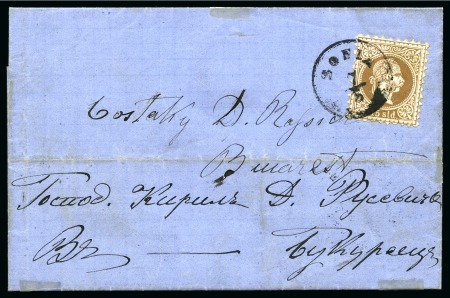 SOFIA
Costaky D.
Bucarest
Господ. Кирилъ Д. Русевичъ
Въ — Букурещъ